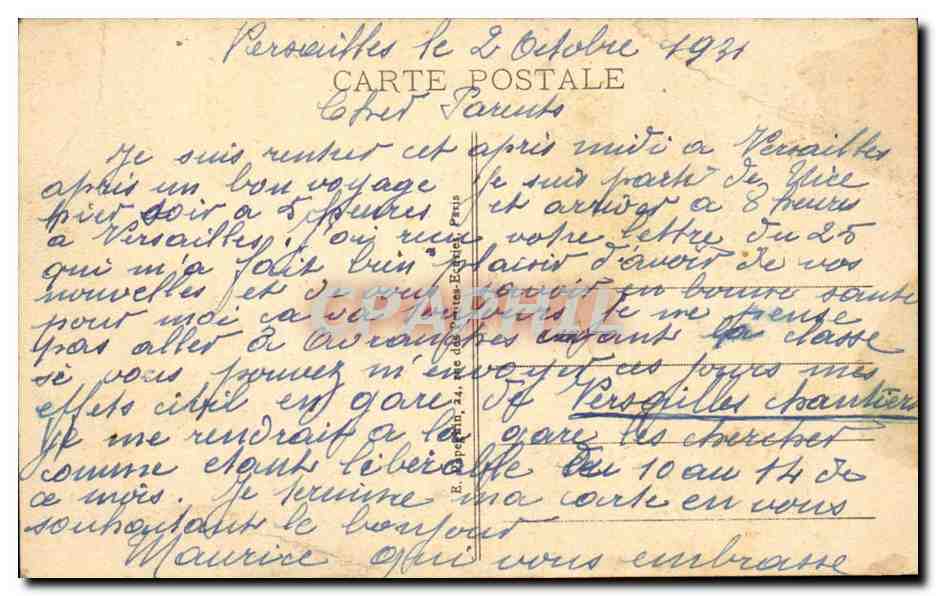 Versailles le 2 Octobre 1931
CARTE POSTALE
Cher Parents
Je suis rentrer cet apris midi a Versailles
apris un bon voyage Je suis parti de Nice
hier soir a 5 heures et arriver a 8 heurs
a Versailles. j'ai recu votre lettre du 25
qui m'a fait bien plaisir d'avoir de vos
nouvelles et de vous savoir en bonne sante
pour moi ca va toujours. Je ne pense
pas aller à Avranches avant la classe
si vous pouvez m'envoyer ces jours mes
effets civil en gare de Versailles chantiers
Je me rendrait a la gare les chercher
comme etant libérable du 10 au 14 de
ce mois. Je termine ma carte en vous
souhaitant le bonjour
Maurice qui vous embrasse
E. Papeghin, 24, rue des Petites-Ecuries, Paris
CPAPHIL